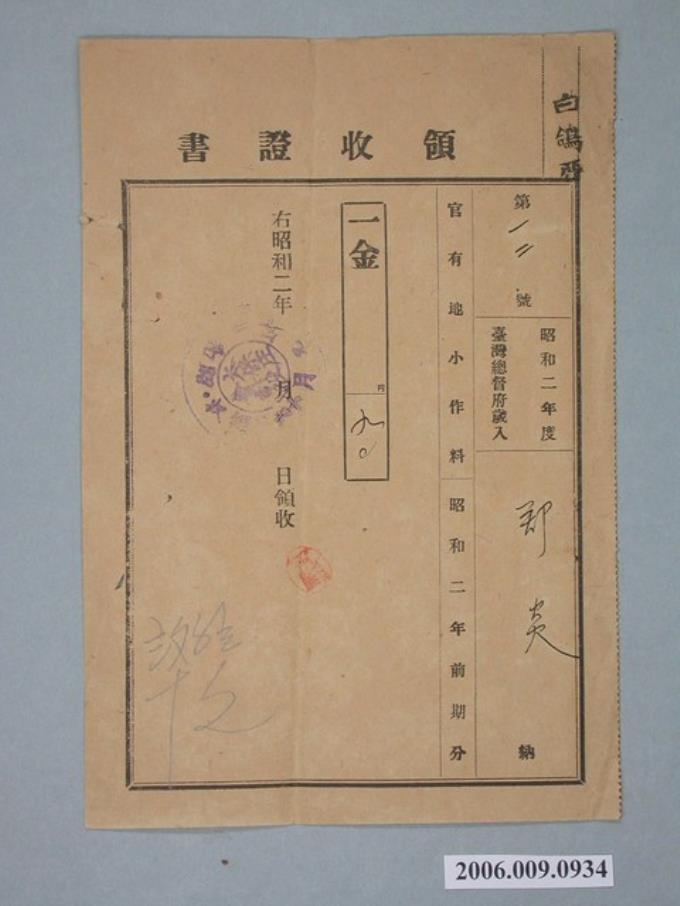 白鴿
領收證書
第一二號
昭和二年度
臺灣總督府歲入
炎
納
官有地小作料
昭和二年前期分
一金
円
九〇
右昭和二年 月 日領收
2006.009.0934